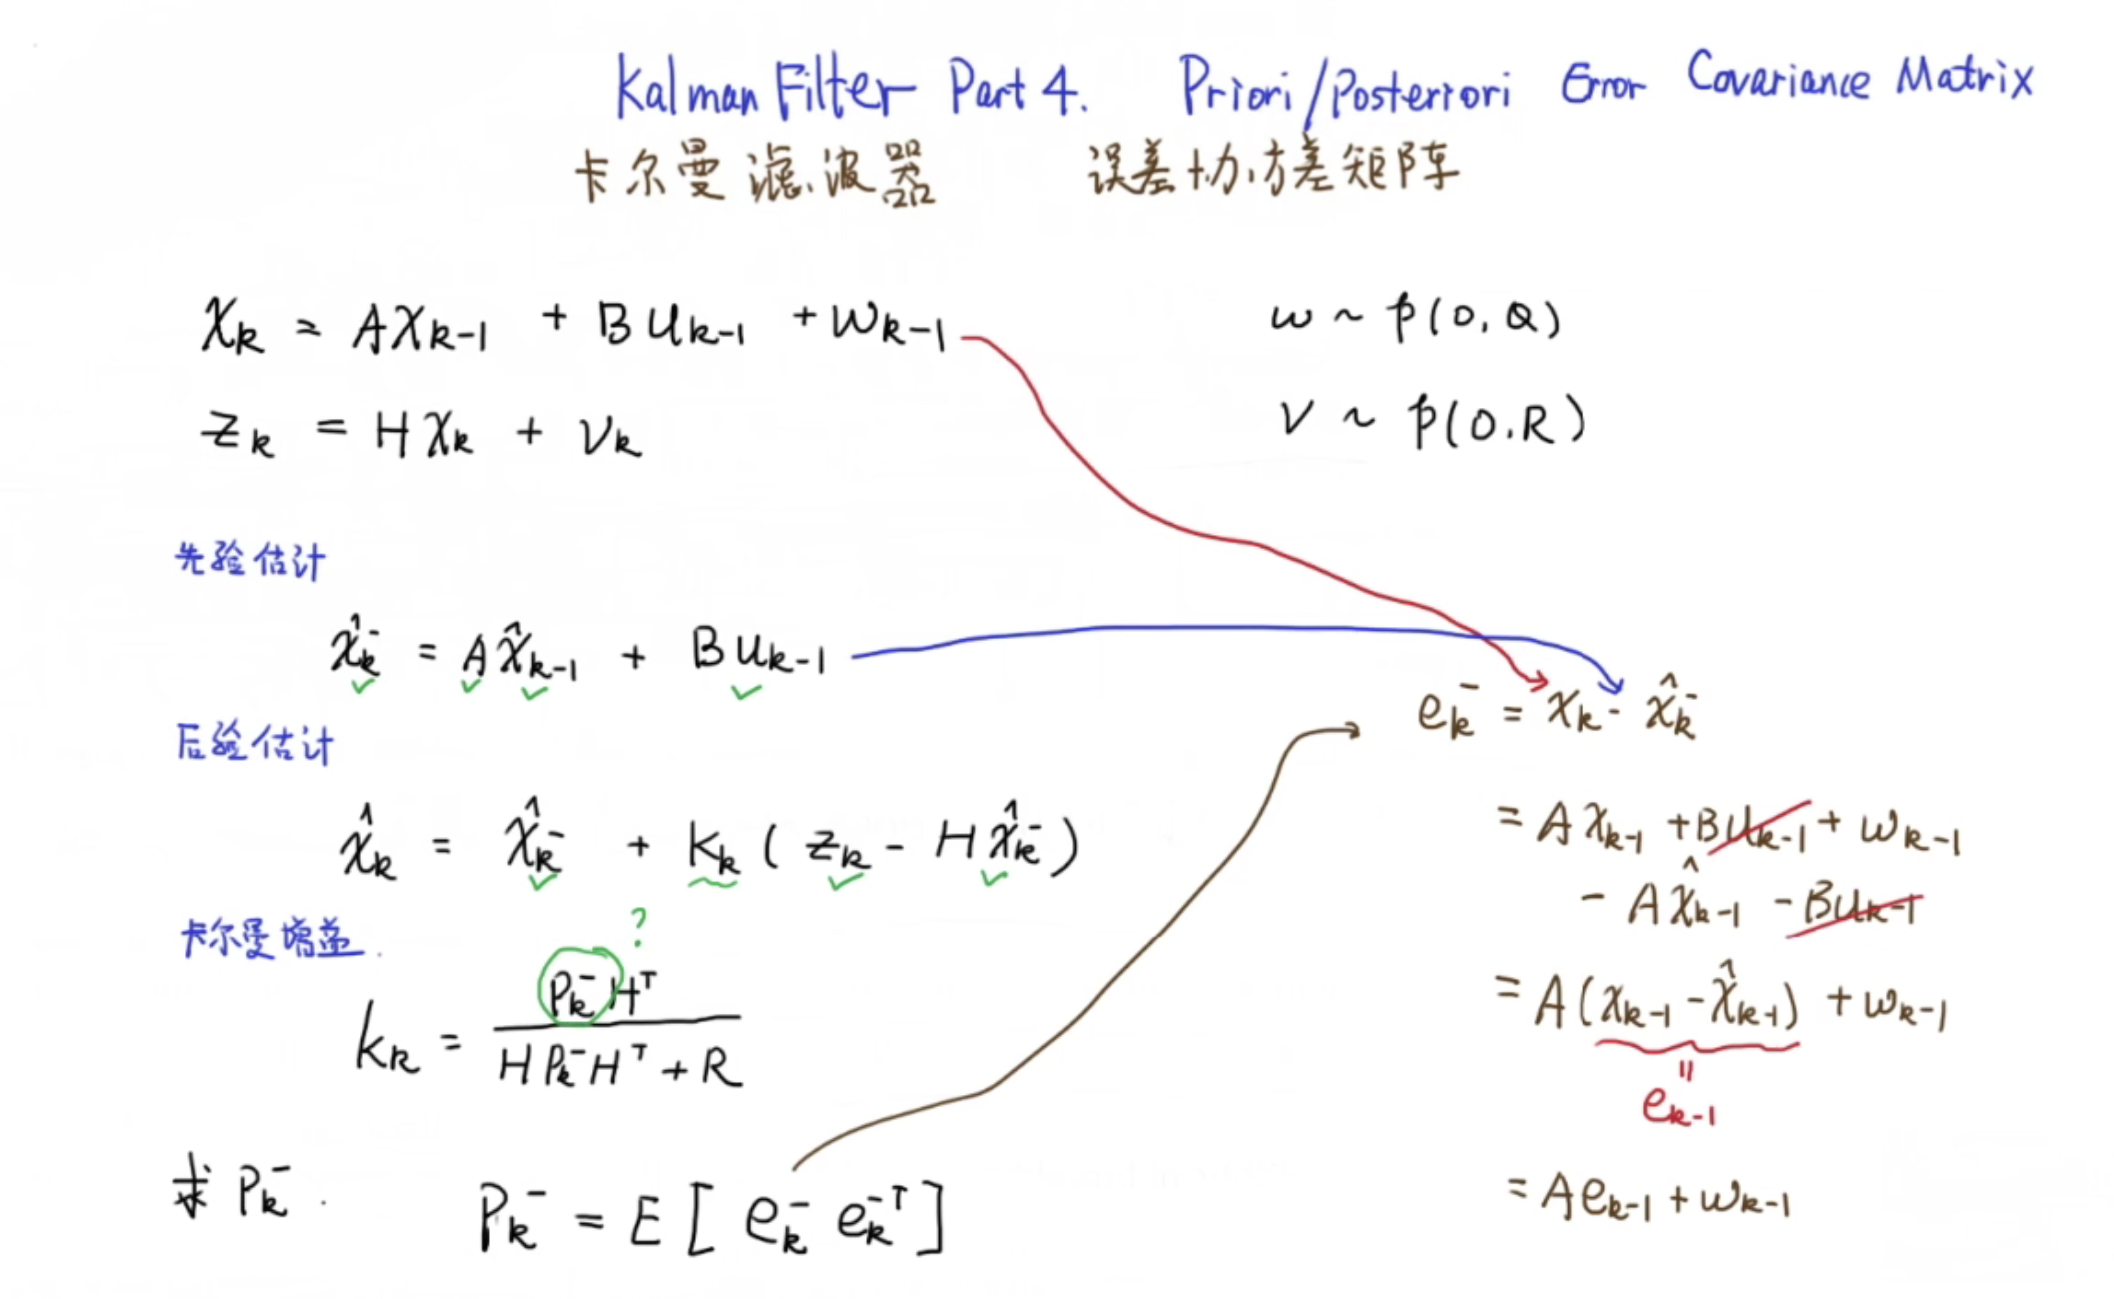 Kalman Filter Part 4. Priori/Posteriori Error Covariance Matrix
卡尔曼滤波器 误差协方差矩阵
χₖ = Aχₖ₋₁ + Buₖ₋₁ + wₖ₋₁
w ~ p(0, Q)
zₖ = Hχₖ + vₖ
v ~ p(0.R)
先验估计
x̂ₖ⁻ = Ax̂ₖ₋₁ + Buₖ₋₁
后验估计
x̂ₖ = x̂ₖ⁻ + Kₖ(zₖ - Hx̂ₖ⁻)
卡尔曼增益.
?
Kₖ = Pₖ⁻Hᵀ / HPₖ⁻Hᵀ + R
求 Pₖ⁻.
Pₖ⁻ = E[eₖ⁻ eₖ⁻ᵀ]
eₖ⁻ = xₖ - x̂ₖ⁻
= Axₖ₋₁ + Buₖ₋₁ + wₖ₋₁
- Ax̂ₖ₋₁ - Buₖ₋₁
= A(xₖ₋₁ - x̂ₖ₋₁) + wₖ₋₁
=
eₖ₋₁
= Aeₖ₋₁ + wₖ₋₁